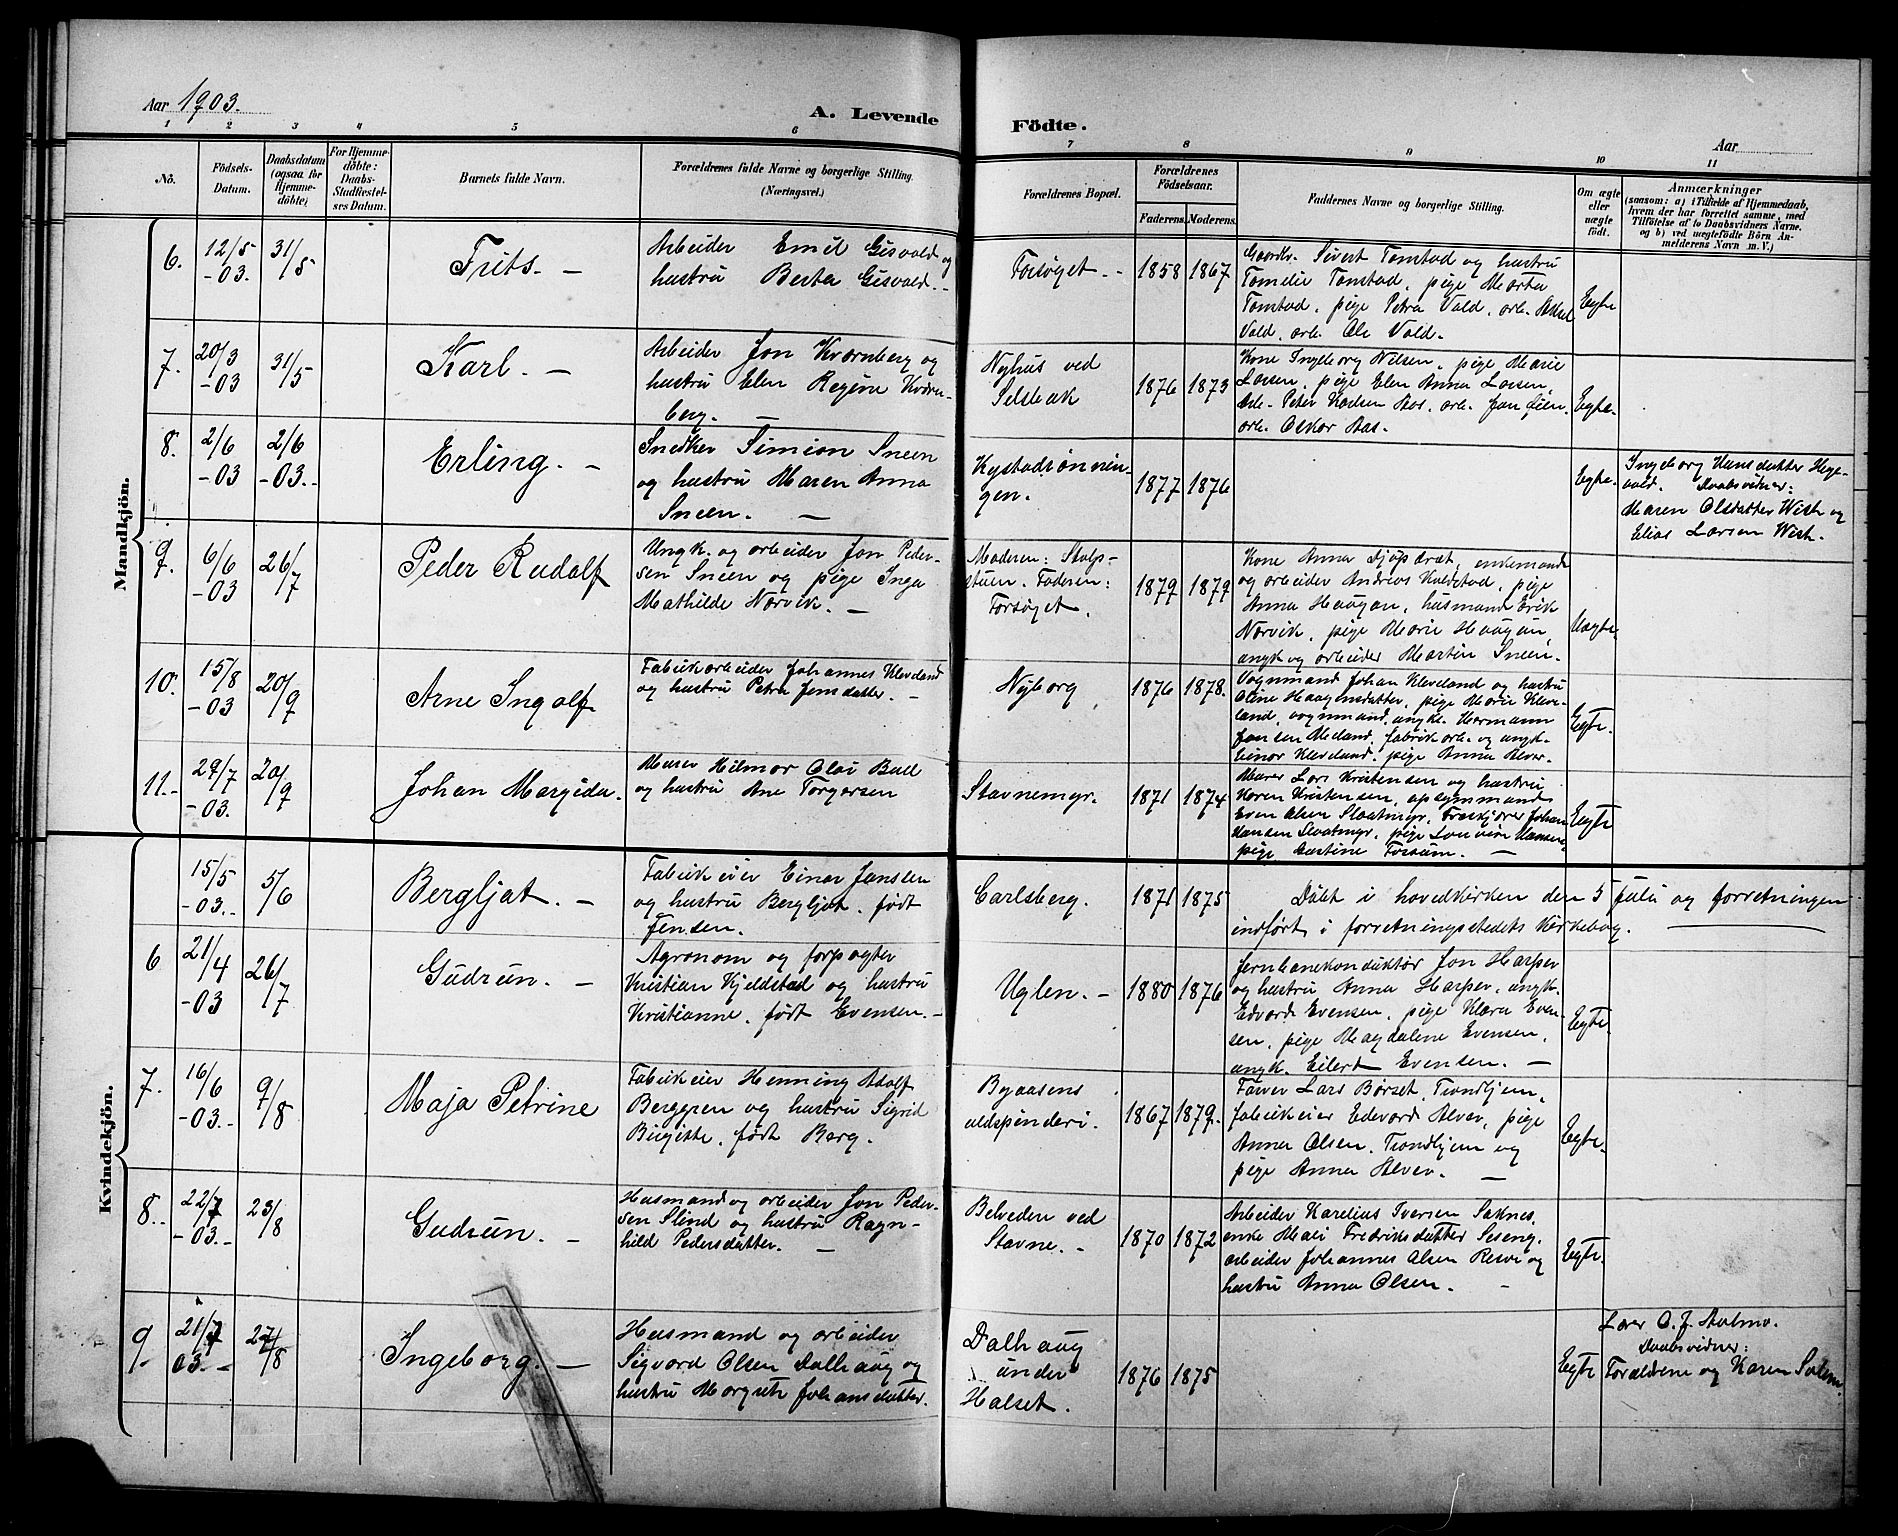 Aar 1903.
A. Levende
Födte.
Aar
1 2 3 4 5 6 7 8 9 10 11
No.
Födsels-
Datum.
Daabsdatum
(ogsaa for
Hjemme-
döbte)
For Hjemme-
döbte:
Daabs-
Stadfæstel-
ses Datum.
Barnets fulde Navn.
Forældrenes fulde Navne og borgerlige Stilling.
(Næringsvei.)
Forældrenes Bopæl.
Forældrenes
Födselsaar.
Faderens. Moderens.
Faddernes Navne og borgerlige Stilling.
Om ægte
eller
uægte
födt.
Anmærkninger
(saasom: a) i Tilfælde af Hjemmedaab,
hvem der har forrettet samme, med
Tilföielse af to Daabsvidners Navne.
og b) ved uægtefödte Börn An-
melderens Navn m. V.)
Mandkjön.
6.
12/5
-03.
31/5
Frits. -
Arbeider Emil Gisvold og
hustru Berta Gisvold. -
Forsøget. -
1858 1867
Gaardbr. Sivert Tomstad og hustru
Tomstad, pige Marta
Tomstad, pige Petra Vold, arb.
Vold, arb. Ole Vold.
Egte
7.
20/3
-03
31/5
Karl. -
Arbeider Jon Kvernberg og
hustru Elen Regine Kvern-
berg.
Nyhus ved
Selsbak
1876 1873
Kone Ingeborg Nilsen, pige Marie
Larsen, pige Elen Anna Larsen,
Arb. Peter Karlsen Aas, arb. Jon Lien,
arb. Oskar Aas.
Egte.
8.
2/6
-03
2/6
-03.
Erling. -
Snedker Simion Sneen
og hustru Maren Anna
Sneen. -
Kystadrønnin-
gen.
1877 1876
Egte.
Ingeborg Hansdatter
Daabsvidner:
Maren Olsdatter Wish og
Elias Larsen Wish.
9.
6/6
-03
26/7
Peder Rudolf
Ungk. og arbeider Jon Peder-
sen Sneen og pige Inga
Mathilde Nervik. -
Moderen: Stolp-
stuen. Faderen:
Forsøget.
1879 1879
Kone Anna enkemand
og arbeider Andreas Kvldstad, pige
Anna Haagan, husmand Erik
Nervik, pige Marie Haagan,
ungk og arbeider Martin Sneen.
Uegte.
10.
15/8
-03
20/9
Arne Ingolf
Fabrikarbeider Johannes Kleveland
og hustru Petra Jensdatter. -
Nyborg
1876 1878.
Vognmand Johan Kleveland og hustru
Oline Haagensdatter, pige Marie Kleve-
land, vognmand, ungk. Hermann
Jonsen Meland, fabrikarb. og ungk.
Einar Kleveland, pige Anna Alver.
Egte.
11.-
29/7
-03.
20/9
Johan Margido.
Murer Hilmar Olai Ball
og hustru Ane Torgersen
Stavnemyr.
1871 1874
Murer Lars Kristensen og hustru
Karen Kristensen, opsynsmand
Even Olsen Slaatmyr, Johan
Hansen Slaatmyr, pige Hansen,
pige Forsum. -
Egte
Kvindekjön.
15/5
-03.-
5/6
Bergljot. -
Fabrikeier Einar Jenssen
og hustru Bergljot, født
Jensen.
Carlsberg.
1871 1875
Døbt i hovedkirken den 5 juli og forretningen
indført i forretningsstedets kirkebog.
6
21/4
-03
26/7
Gudrun. -
Agronom og forpagter
Kristian Kjeldstad og hustru
Kristianne, født Evensen. -
Uglen. -
1880 1876
Jernbanekonduktør Jon Harper
og hustru Anna Harper, ungk.
Edvard Evensen, pige Klara Even-
sen, pige Magdalene Evensen,
ungk. Eilert Evensen. -
Egte.
7.
16/6
-03.-
9/8
Maja Petrine
Fabrikeier Henning Adolf
Berggren og hustru Sigrid
Birgitte, født Berg.
Byaasens
uldspinderi.
1867 1879.
Farver Lars Børset, Trondhjem,
fabrikeier Edevard Alver, pige
Anna Olsen, Trondhjem og
pige Anna Alver. -
Egte.
8.-
22/7
-03.-
23/8
Gudrun. -
Husmand og arbeider Jon Peder-
sen Slind og hustru Ragn-
hild Pedersdatter. -
Belvedere ved
Stavne. -
1870 1872
Arbeider Karelius Iversen Saknes,
enke Mari Fredriksdatter Seseng,
arbeider Johannes Olsen Resve og
hustru Anna Olsen. -
Egte.
9.
21/7
03.-
27/8
Ingeborg. -
Husmand og arbeider
Sigvard Olsen Dalhaug og
hustru Margrete Johansdatter.
Dalhaug
under
Halset.
1876 1875
Egte
Lærer O. J. Solem.
Daabsvidner:
Forældrene og Karen Solem.